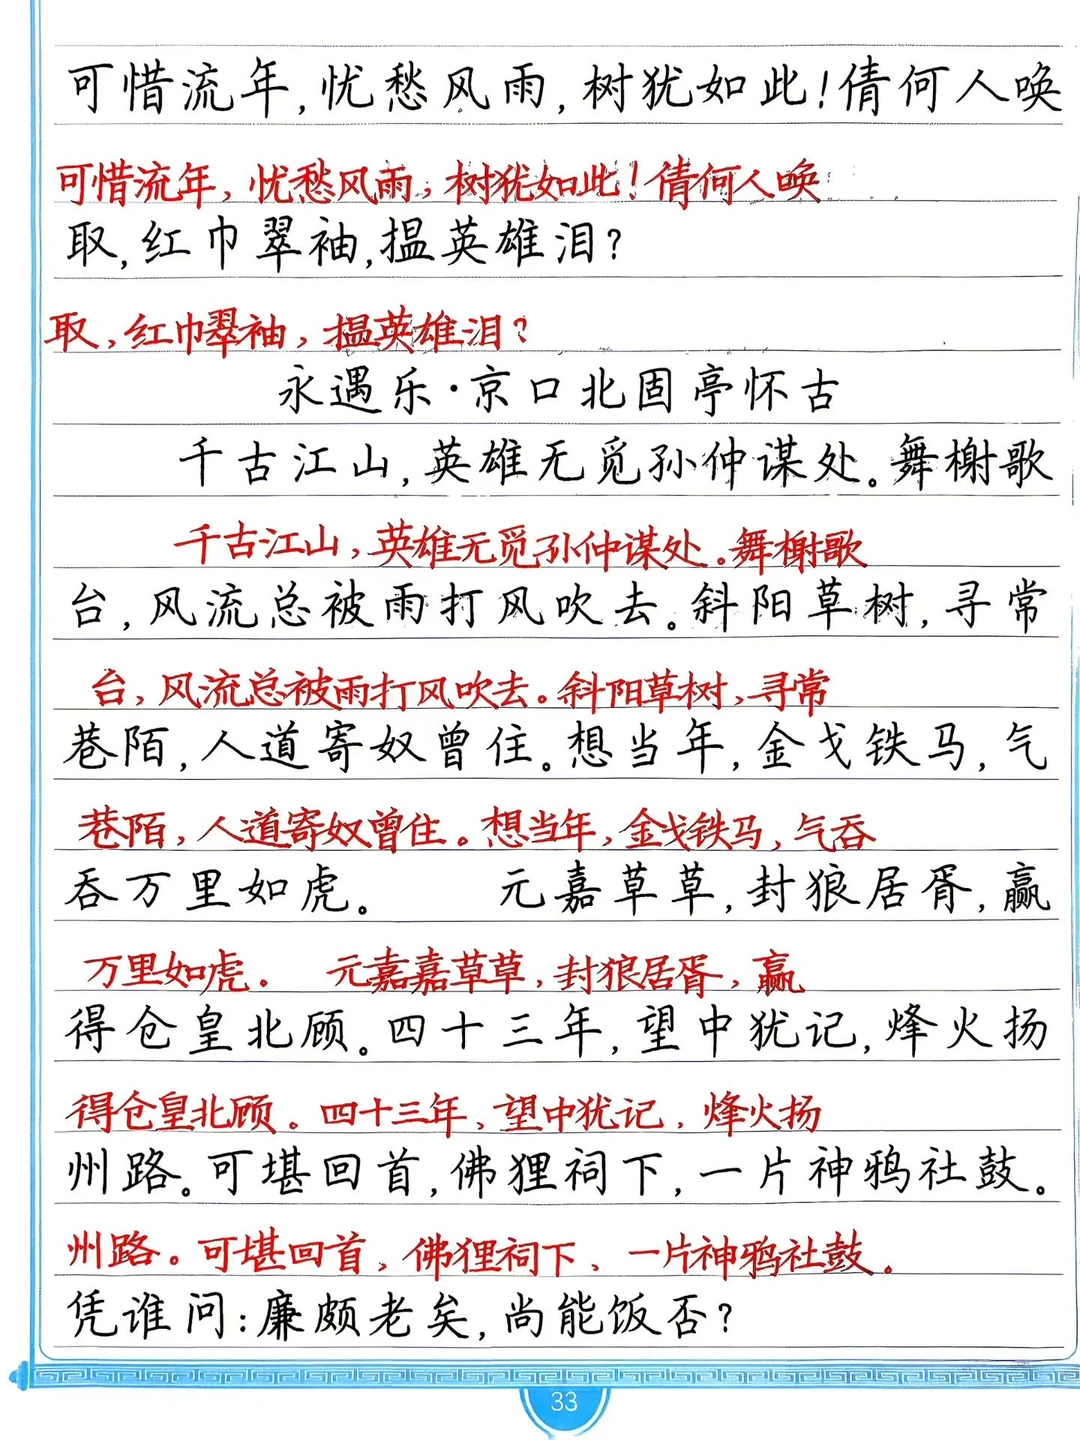 可惜流年,忧愁风雨,树犹如此!倩何人唤
可惜流年,忧愁风雨,树犹如此!倩何人唤
取,红巾翠袖,揾英雄泪?
取,红巾翠袖,揾英雄泪?
永遇乐·京口北固亭怀古
千古江山,英雄无觅孙仲谋处。舞榭歌
千古江山,英雄无觅孙仲谋处。舞榭歌
台,风流总被雨打风吹去。斜阳草树,寻常
台,风流总被雨打风吹去。斜阳草树,寻常
巷陌,人道寄奴曾住。想当年,金戈铁马,气
巷陌,人道寄奴曾住。想当年,金戈铁马,气吞
吞万里如虎。 元嘉草草,封狼居胥,赢
万里如虎。 元嘉嘉草草,封狼居胥,赢
得仓皇北顾。四十三年,望中犹记,烽火扬
得仓皇北顾。四十三年,望中犹记,烽火扬
州路。可堪回首,佛狸祠下,一片神鸦社鼓。
州路。可堪回首,佛狸祠下,一片神鸦社鼓。
凭谁问:廉颇老矣,尚能饭否?
33